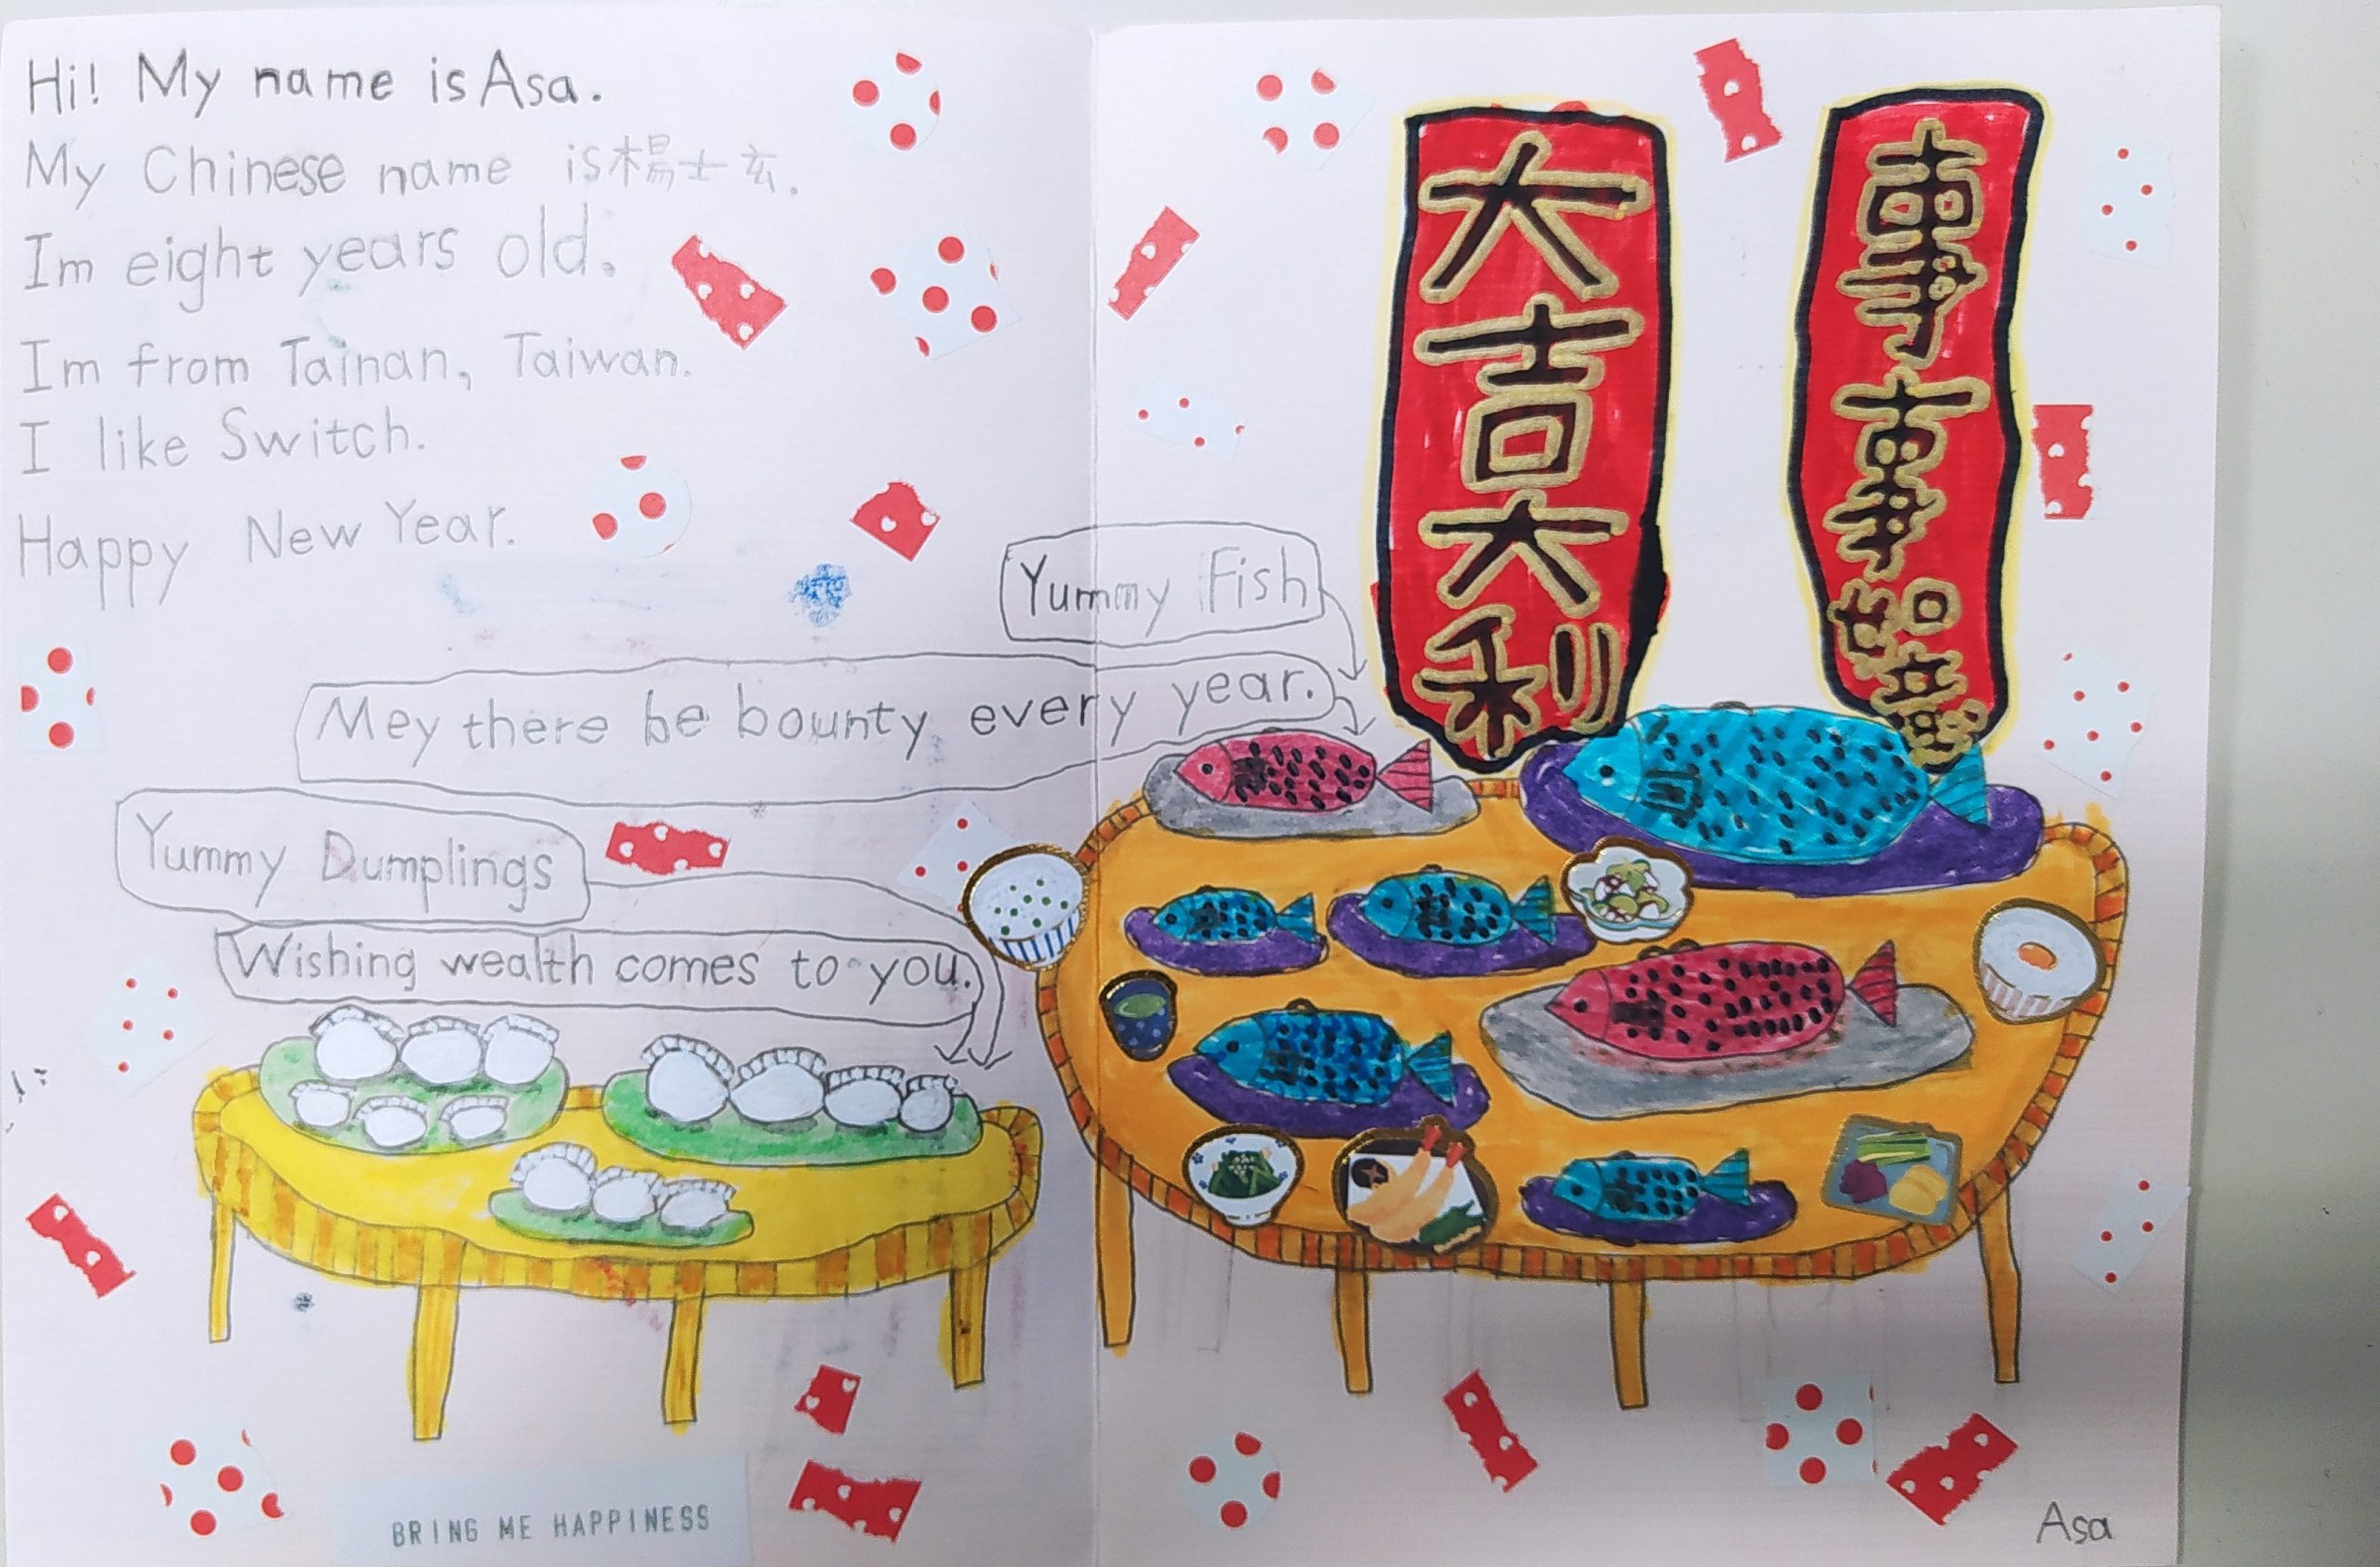 Hi! My name is Asa.
My Chinese name is 楊士玄.
Im eight years old.
Im from Tainan, Taiwan.
I like Switch.
Happy New Year.
Yummy Fish
Mey there be bounty every year.
Yummy Dumplings
Wishing wealth comes to you.
BRING ME HAPPINESS
事事如意
大吉大利
Asa